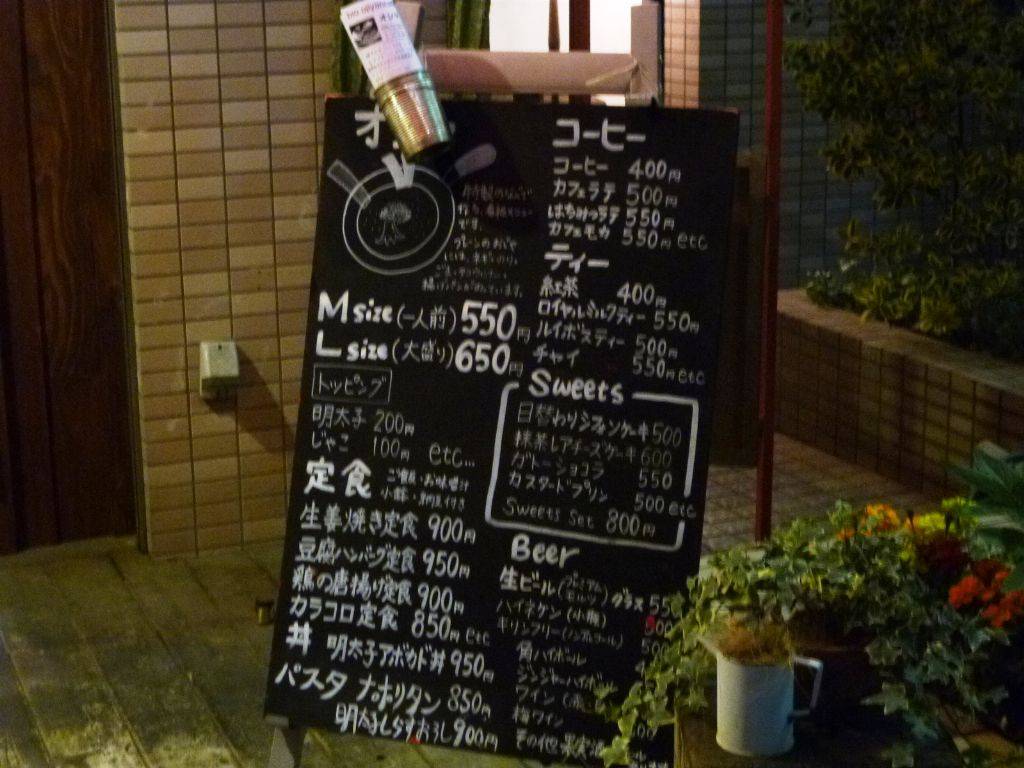 コーヒー
コーヒー 400円
カフェラテ 500円
はちみつラテ 550円
カフェモカ 550円 etc
ティー
紅茶 400円
ロイヤルミルクティー 550円
ルイボスティー 500円
チャイ 550円 etc
M size (一人前) 550円
L size (大盛り) 650円
トッピング
明太子 200円
じゃこ 100円 etc...
定食 ご飯・お味噌汁
小鉢・納豆付き
生姜焼き定食 900円
豆腐ハンバーグ定食 950円
鶏の唐揚げ定食 900円
カラコロ定食 850円 etc
丼 明太子アボカド丼 950円
パスタ ナポリタン 850円
明太子しらすおろし 900円
Sweets
日替わりシフォンケーキ 500
抹茶レアチーズケーキ 600
ガトーショコラ 550
カスタードプリン 500 etc
Sweets Set 800円
Beer
生ビール (プレミアムモルツ) グラス 55
ハイネケン (小瓶) 500
キリンフリー (ノンアルコール) 500
角ハイボール
ジンジャーハイボール
ワイン
梅ワイン
その他果実酒